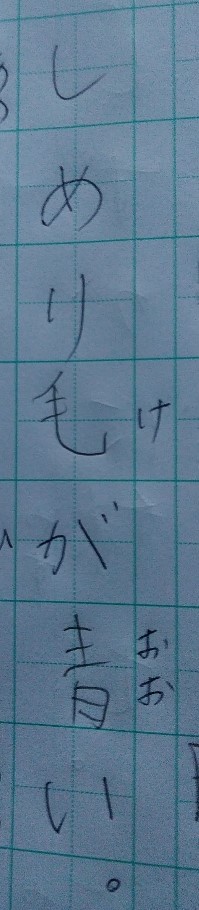 しめり毛が青い。
け
おお